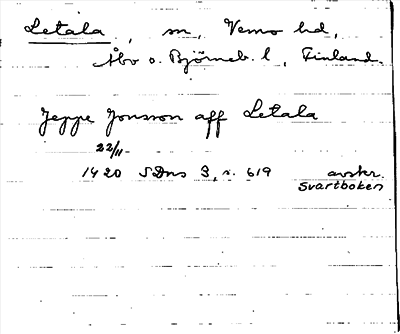 Letala, sn, Vemo hd,
Åbo o. Björneb. l, Finland.
Jeppe Jonsson aff Letala
22/11
1420 SDns 3, s. 619 avskr.
Svartboken